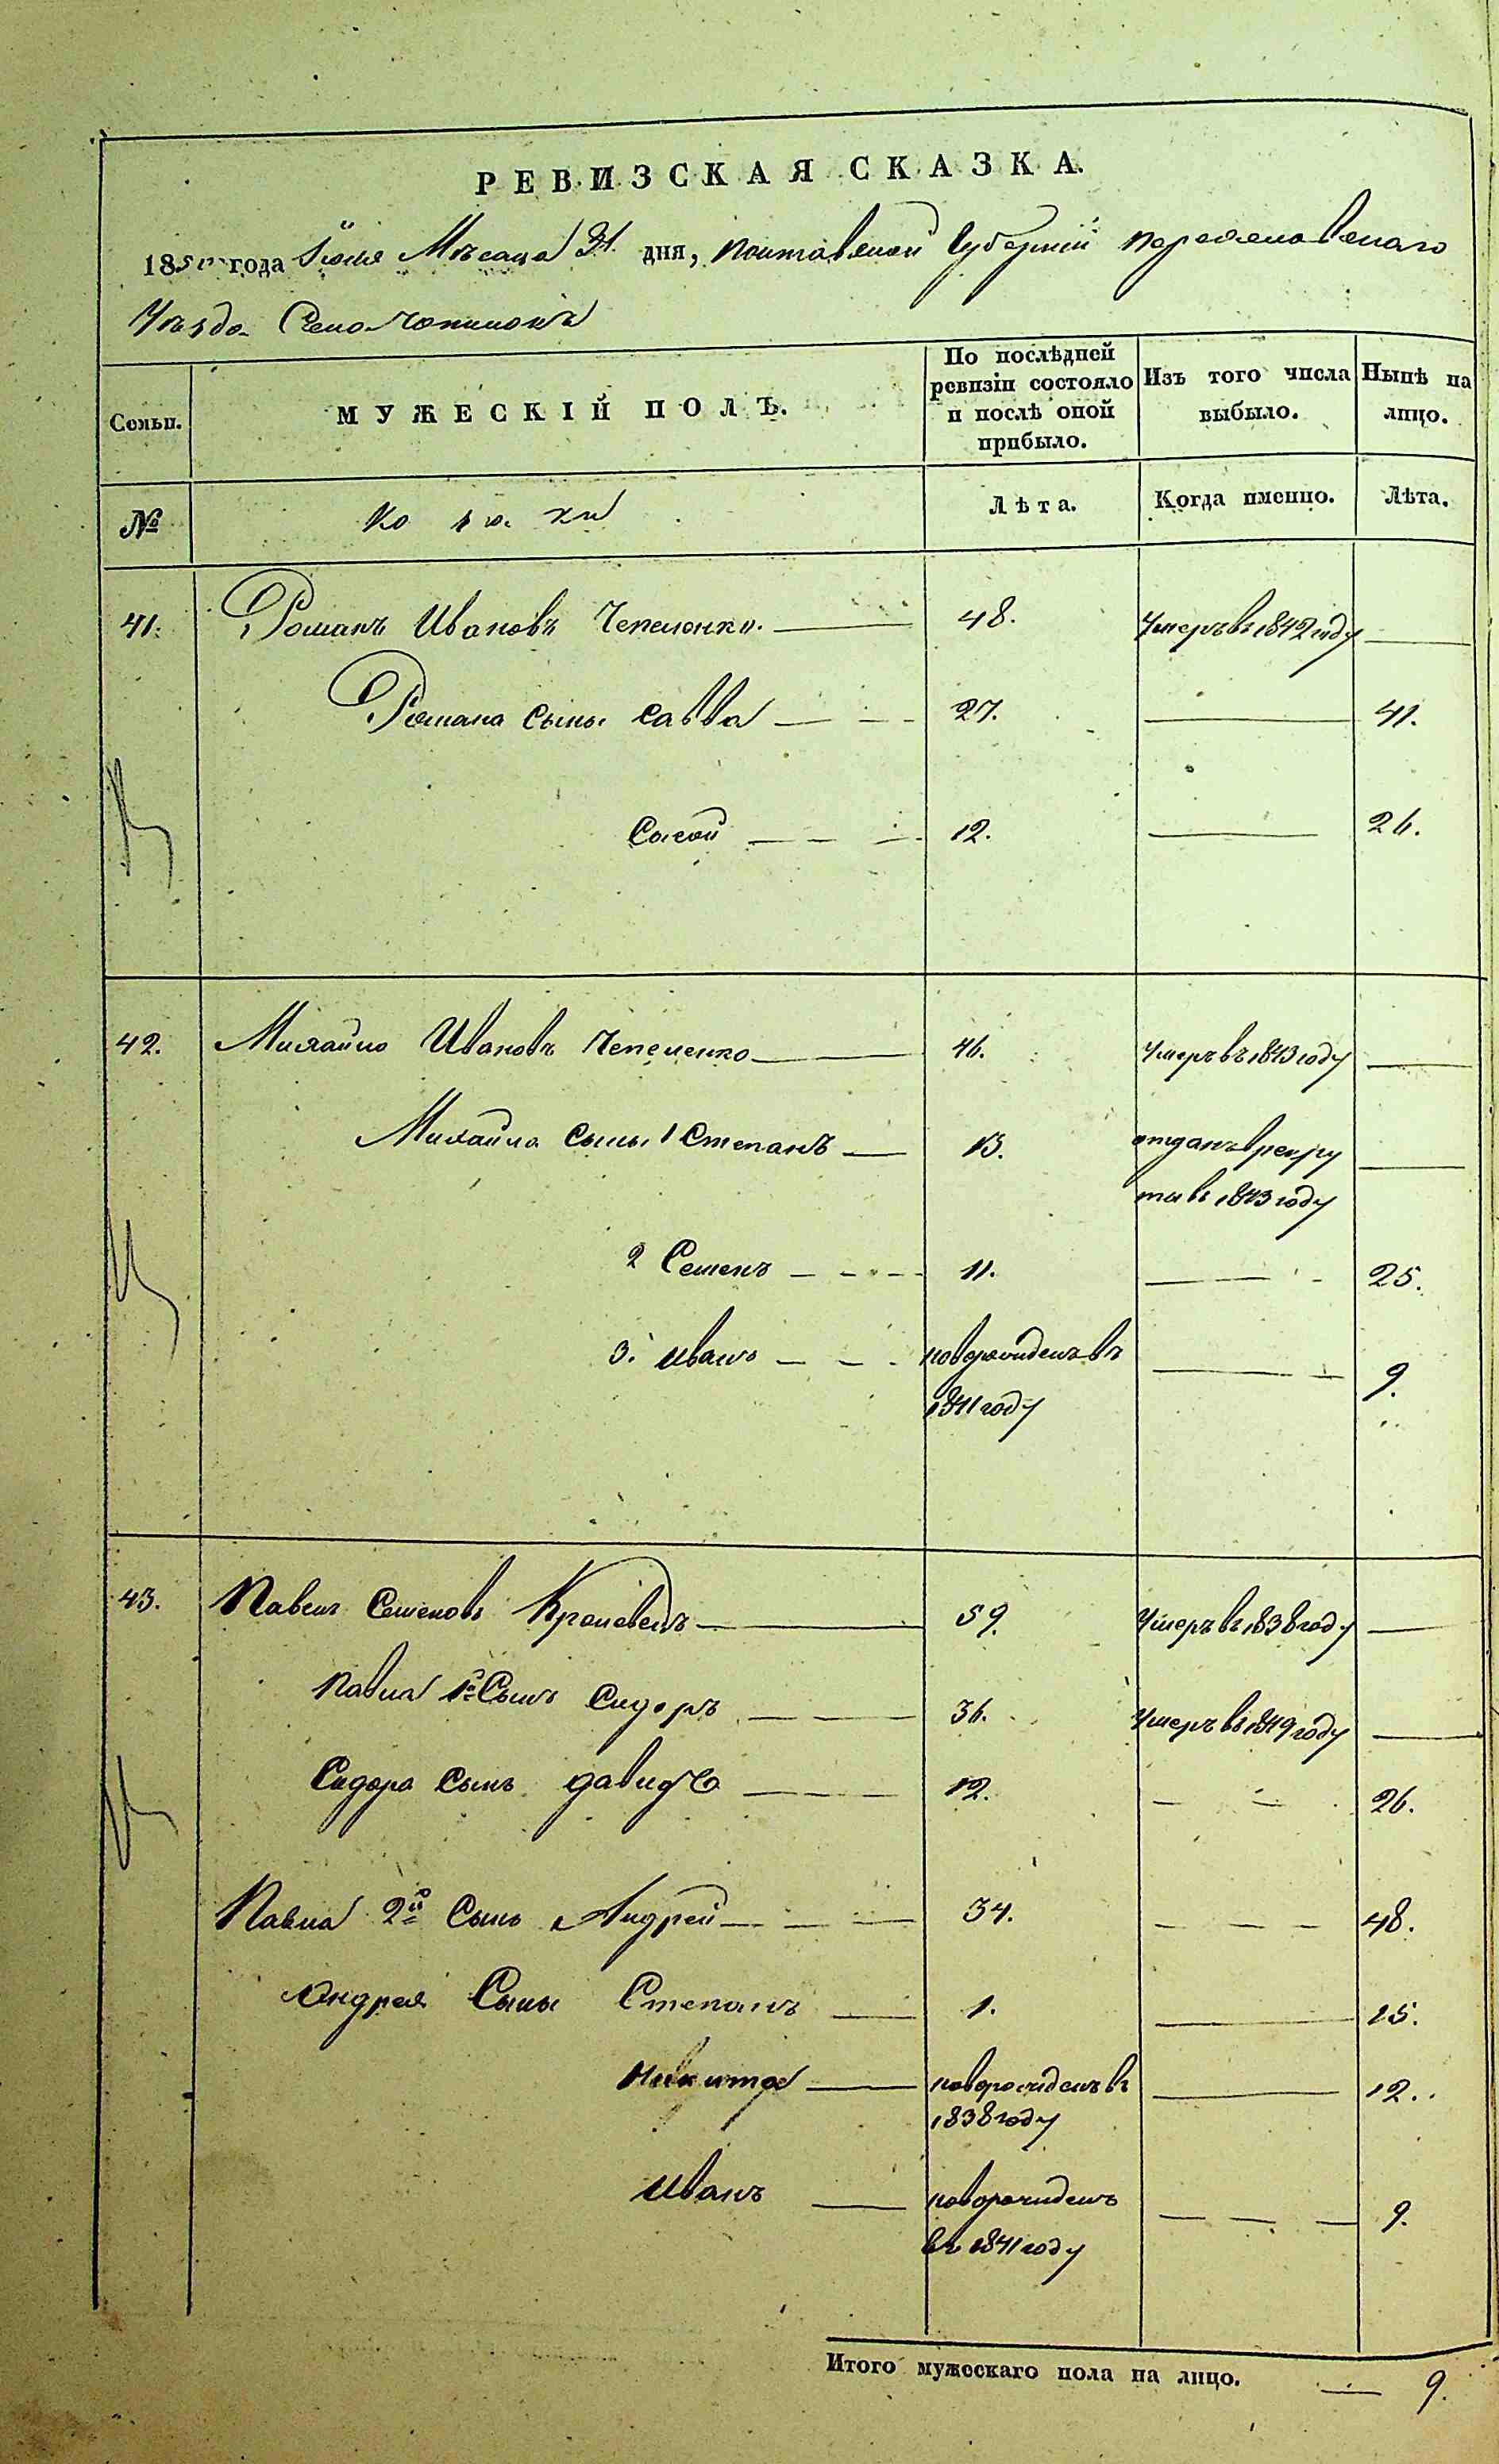 РЕВИЗСКАЯ СКАЗКА.
1850 года Мѣсяца 31 дня, Полтавской Губерній Переяславскаго
Уѣзда Село
Семьи. МУЖЕСКІЙ ПОЛЪ. По послѣдней ревизіи состояло и послѣ оной прибыло. Изъ того числа выбыло. Нынѣ на лицо.
№ Лѣта. Когда именно. Лѣта.
41. Романъ Ивановъ Чепеленко. 48. Умеръ въ 1842 году
Романа Сыны Савва 27. 41.
Сысой 12. 26.
42. Михайло Ивановъ Чепеленко 46. Умеръ въ 1843 году
Михайла Сыны 1 Степанъ 13. отданъ в рекру
ты въ 1843 году
2 Семенъ 11. 25.
3. Иванъ новорожденъ въ 9.
1841 году
43. Павелъ Семеновъ Кролевецъ 59. Умеръ въ 1838 году
Павла 1й Сынъ Сидоръ 36. Умеръ въ 1849 году
Сидора Сынъ Давидъ 12. 26.
Павла 2й Сынъ Андрей 34. 48.
Андрея Сыны Степанъ 1. 15.
Никита новорожденъ въ 12.
1838 году
Иванъ новорожденъ 9.
въ 1841 году
Итого мужескаго пола на лицо. 9.